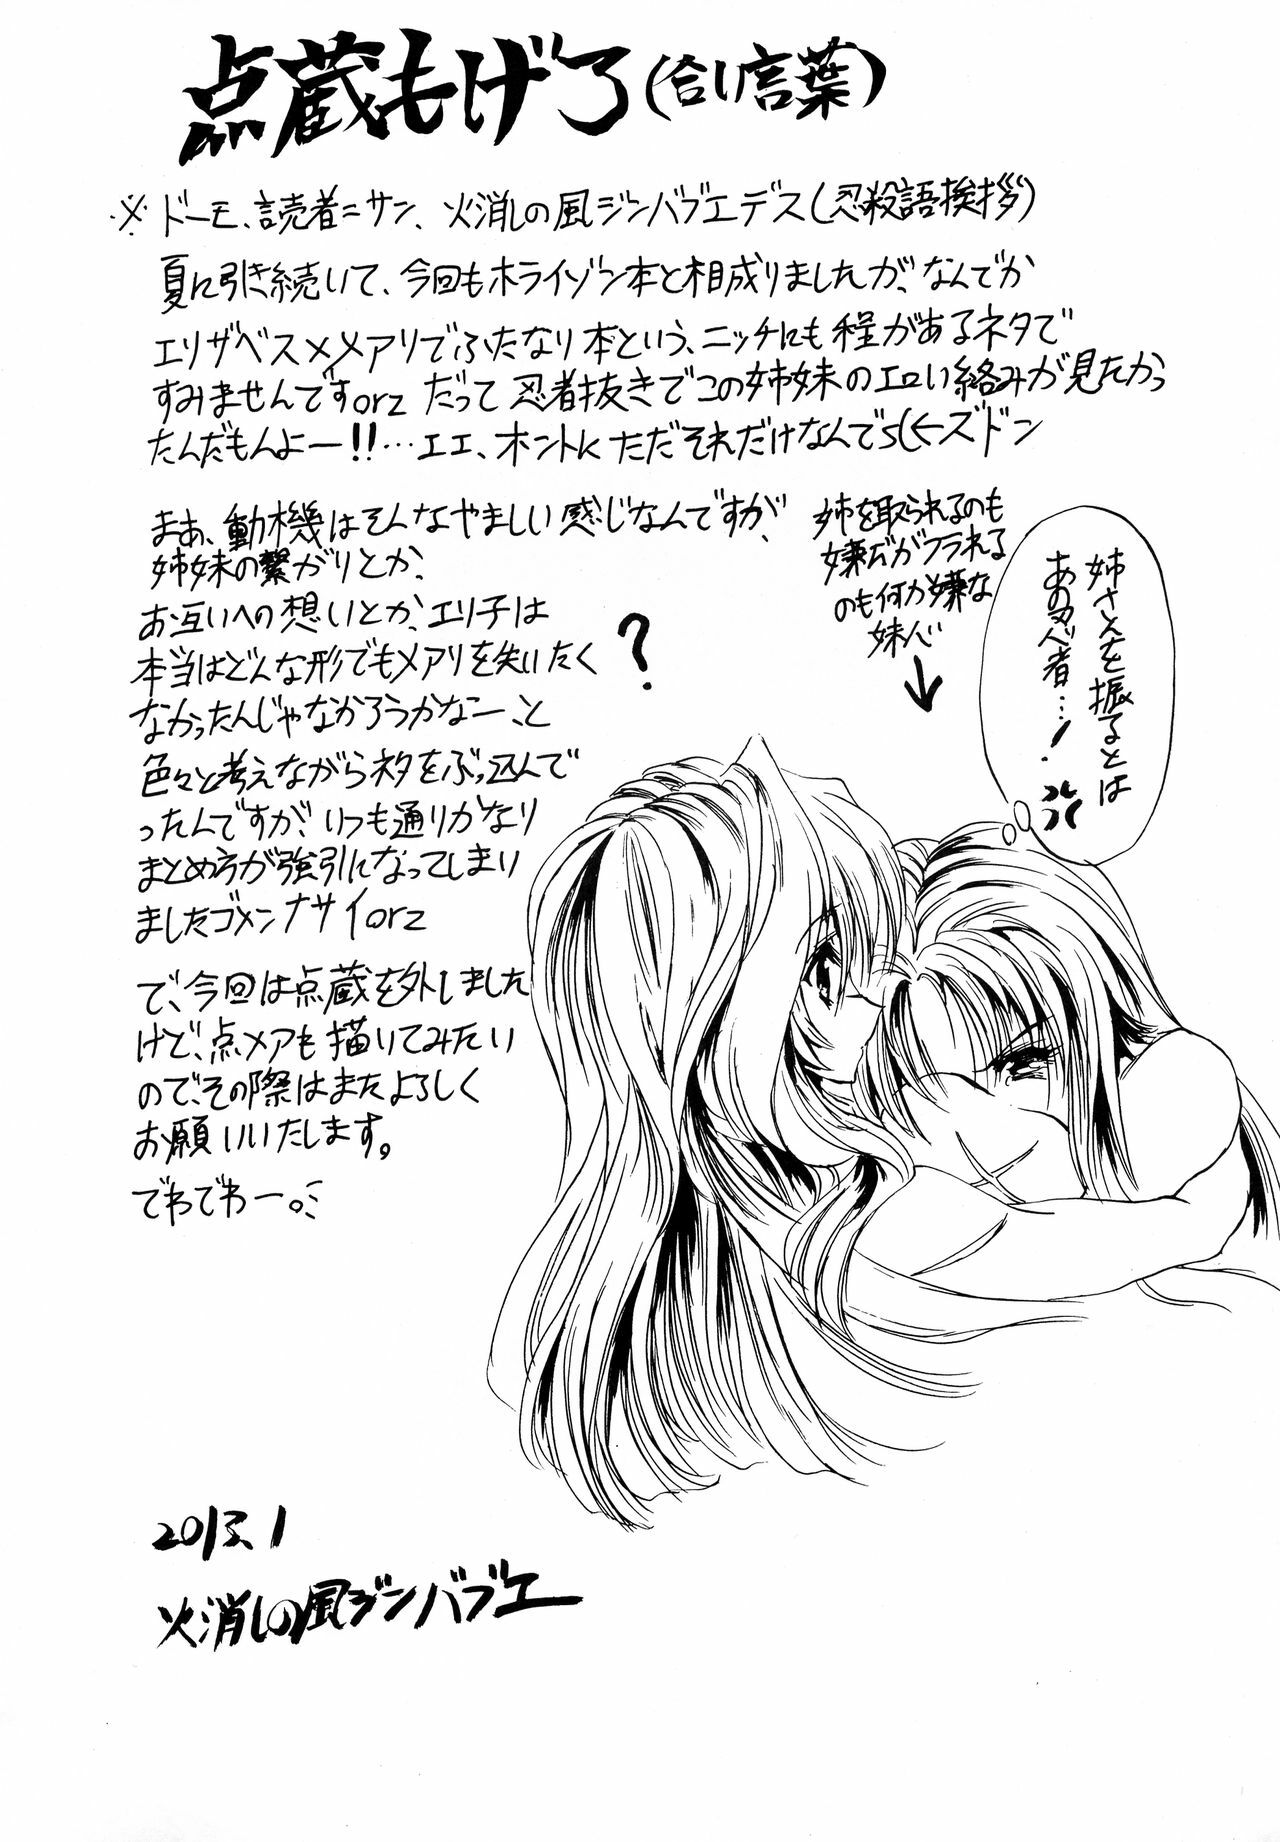 点蔵もげろ(合い言葉)
※ドーモ、読者=サン、火消しの風ジンバブエデス(忍殺語挨拶)
夏に引き続いて、今回もホライゾン本と相成りましたが、なんでか
エリザベス×メアリでふたなり本という、ニッチにも程があるネタで
すみませんですorz だって忍者抜きでこの姉妹のエロい絡みが見たかっ
たんだもんよー!!…エエ、ホントにただそれだけなんでs(←ズドン
まあ、動機はそんなやましい感じなんですが、
姉妹の繋がりとか、
お互いへの想いとか、エリ子は
本当はどんな形でもメアリを失いたく
なかったんじゃなかろうかなー、と
?
色々と考えながらネタをぶっ込んで
ったんですが、いつも通りかなり
まとめ方が強引になってしまい
ましたゴメンナサイorz
で、今回は点蔵を外しました
けど、点メアも描いてみたい
のでその際はまたよろしく
お願いいたします。
でわでわー。
姉を取られるのも
嫌だがフラれる
のも何か嫌な
妹心
↓
姉さんを振るとは
あの忍者…!
2013.1
火消しの風ジンバブエ